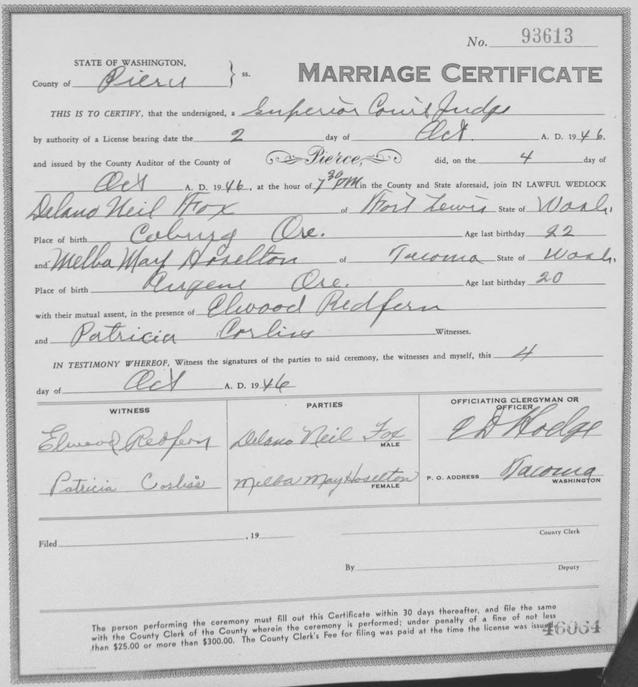 No. 93613
STATE OF WASHINGTON,
County of Pierce } ss.
MARRIAGE CERTIFICATE
THIS IS TO CERTIFY, that the undersigned, a Superior Court Judge
by authority of a License bearing date the 2 day of Oct A. D. 1946,
and issued by the County Auditor of the County of Pierce, did, on the 4 day of
Oct A. D. 1946, at the hour of 7 30 PM in the County and State aforesaid, join IN LAWFUL WEDLOCK
Delano Neil Fox of Fort Lewis State of Wash.
Place of birth Coburg Ore. Age last birthday 22
and Melba May Hoselton of Tacoma State of Wash.
Place of birth Eugene Ore. Age last birthday 20
with their mutual assent, in the presence of Elwood Redfern
and Patricia Corliss Witnesses.
IN TESTIMONY WHEREOF, Witness the signatures of the parties to said ceremony, the witnesses and myself, this 4
day of Oct A. D. 1946
WITNESS PARTIES OFFICIATING CLERGYMAN OR OFFICER
Elwood Redfern Delano Neil Fox E D Hodge
MALE
Patricia Corliss Melba May Hoselton P. O. ADDRESS Tacoma
FEMALE WASHINGTON
Filed , 19 County Clerk
By Deputy
The person performing the ceremony must fill out this Certificate within 30 days thereafter, and file the same
with the County Clerk of the County wherein the ceremony is performed; under penalty of a fine of not less
than $25.00 or more than $300.00. The County Clerk's Fee for filing was paid at the time the license was issued.
46064